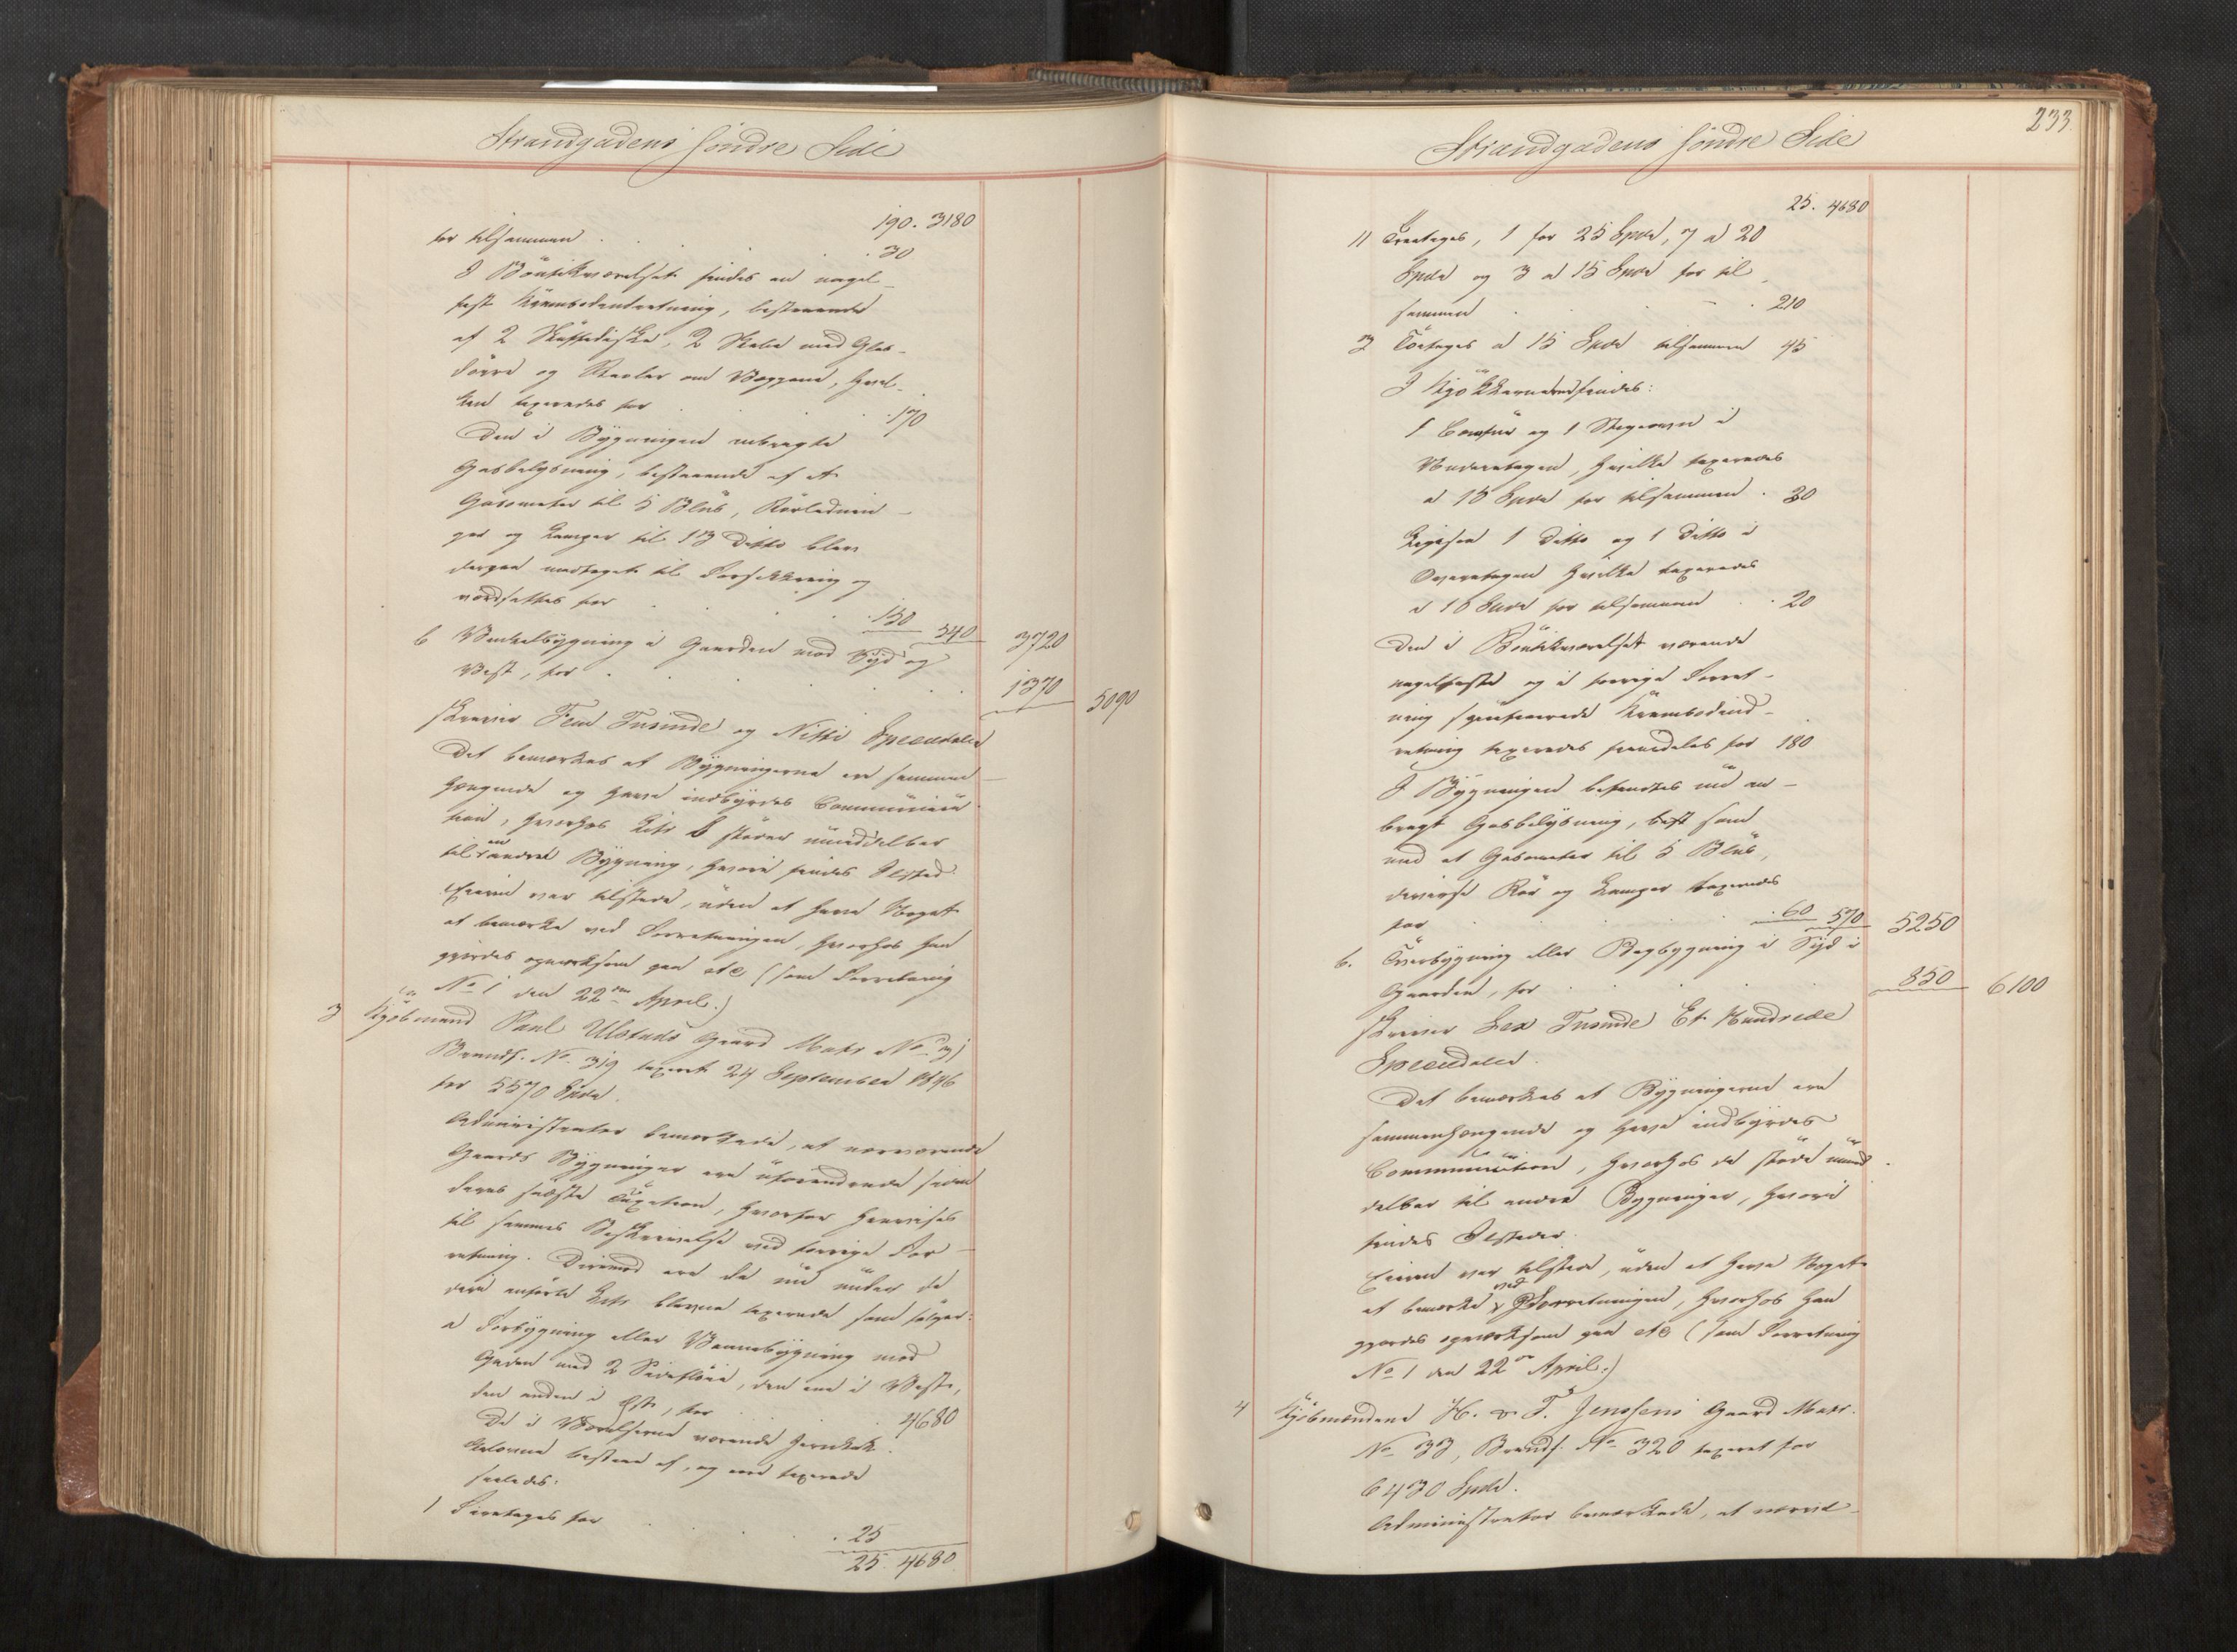 Strandgadens söndre Side
190. 3180
for tilsammen . . . 30
I Boutikværelset findes en nagel-
fast Krambodindretning, bestaaende
af 2 Skuffediske, 2 Skabe med Glas-
dörre og Reoler om Væggene, hvil-
ken taxeredes for . . . 170
Den i Bygningen anbragte
Gasbelysning, bestaaende af et
Gasometer til 5 Blus, Rörlednin-
ger og Lamper til 13 Ditto blev
derpaa modtaget til Forsikkring og
værdsattes for . . . 150 540 3720
b Vinkelbygning i Gaarden mod Syd og
Vest, for . . . 1370 5090
skriver Fem Tusinde og Nitti Speciedaler
Det bemærkes at Bygningerne ere sammen-
hængende og have indbyrdes Communica-
tion, hvorhos Litr b störer umiddelbar
til en anden Bygning, hvori findes Ildsted.
Eieren var tilstede, uden at have Noget
at bemærke ved Forretningen, hvorhos han
gjordes opmærksom paa etc (som Forretning
No 1 den 22de April.)
3 Kjöbmand Paul Ulstads Gaard Matr No 31
Brandf. No 319 taxeret 24 September 1846
for 5570 Spdlr.
Administrator bemærkede, at nærværende
Gaards Bygninger ere uforandrede siden
deres sidste Taxation, hvorfor henvises
til sammes Beskrivelse ved forrige For-
retning. Derimod ere de nu under de
deri anförte Litr blevne taxerede som fölger:
a Forbygning eller Vaanebygning mod
Gaden med 2 Sideflöie, den ene i Vest,
den anden i Öst, for . . 4680
De i Værelserne værende Jernkak-
kelovne bestaae af, og ere taxerede
saaledes:
1 Fireetages for . . . 25
25. 4680

233.
Strandgadens söndre Side
25. 4680
11 Treetages, 1 for 25 Spdlr, 7 a 20
Spdlr og 3 a 15 Spdlr for til-
sammen . . . 210
3 Toetages a 15 Spdlr tilsammen 45
I Kjökkenerne findes:
1 Comfur og 1 Stegeovn i
Underetagen, hvilke taxeredes
a 15 Spdlr for tilsammen . 30
Ligesaa 1 Ditto og 1 Ditto i
Overetagen hvilke taxeredes
a 10 Spdlr for tilsammen . . 20
Den i Boutikværelset værende
nagelfaste og i forrige Forret-
ning specificerede Krambodind-
retning taxeredes fremdeles for 180
I Bygningen befandtes nu an-
bragt Gasbelysning, der som
med et Gasometer til 5 Blus,
diverse Rör og Lamper taxeredes
for . . . 60 570 5250
b. Tverbygning eller Bagbygning i Syd i
Gaarden, for . . . 850 6100
skriver Sex Tusinde Et Hundrede
Speciedaler.
Det bemærkes at Bygningerne ere
sammenhængende og have indbyrdes
Communication, hvorhos de stöde umid-
delbar til andre Bygninger, hvori
findes Ildsteder.
Eieren var tilstede, uden at have Noget
at bemærke ved Forretningen, hvorhos han
gjordes opmærksom paa etc (som Forretning
No 1 den 22de April.)
4 Kjöbmændene H. & F. Jenssens Gaard Matr.
No 33, Brandf. No 320 taxeret for
6430 Spdlr.
Administrator bemærkede, at nærvæ-